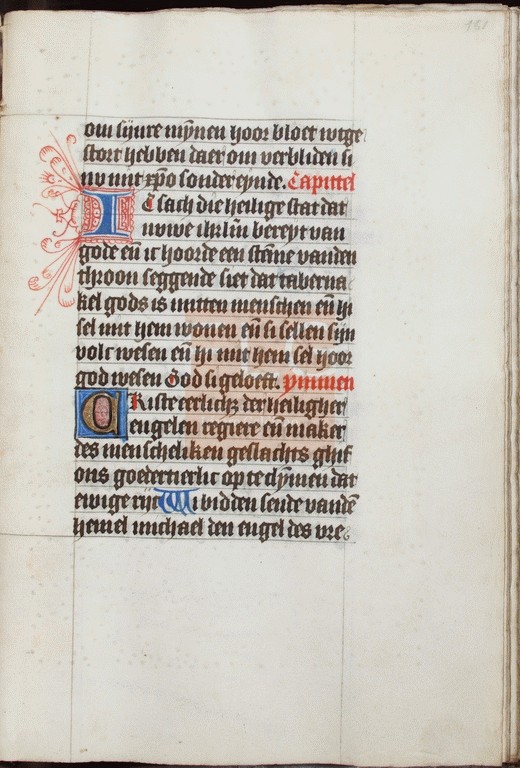 181
om sijnre mÿnen hoor bloet wtge
stort hebben daer om verbliden si
nv mit xp̄o sonder eynde. Capittel
IC sach die heilige stat dat
nuwe ihrl̄m bereyt van
gode eñ ic hoorde een stēne vanden
throon seggende siet dat taberna
kel gods is mitten menschen eñ hi
sel mit hem wonen eñ si sellen sijn
volc wesen eñ hi mit hem sel hoor
god wesen God si geloeft. ymmen
CRiste eerlich; der heiligher
engelen regiere eñ maker
des menscheliken geslachts ghif
ons goedertierlic op te clÿmen dat
ewige rijc Wi bidden sende vandē
hemel michael den engel des vre